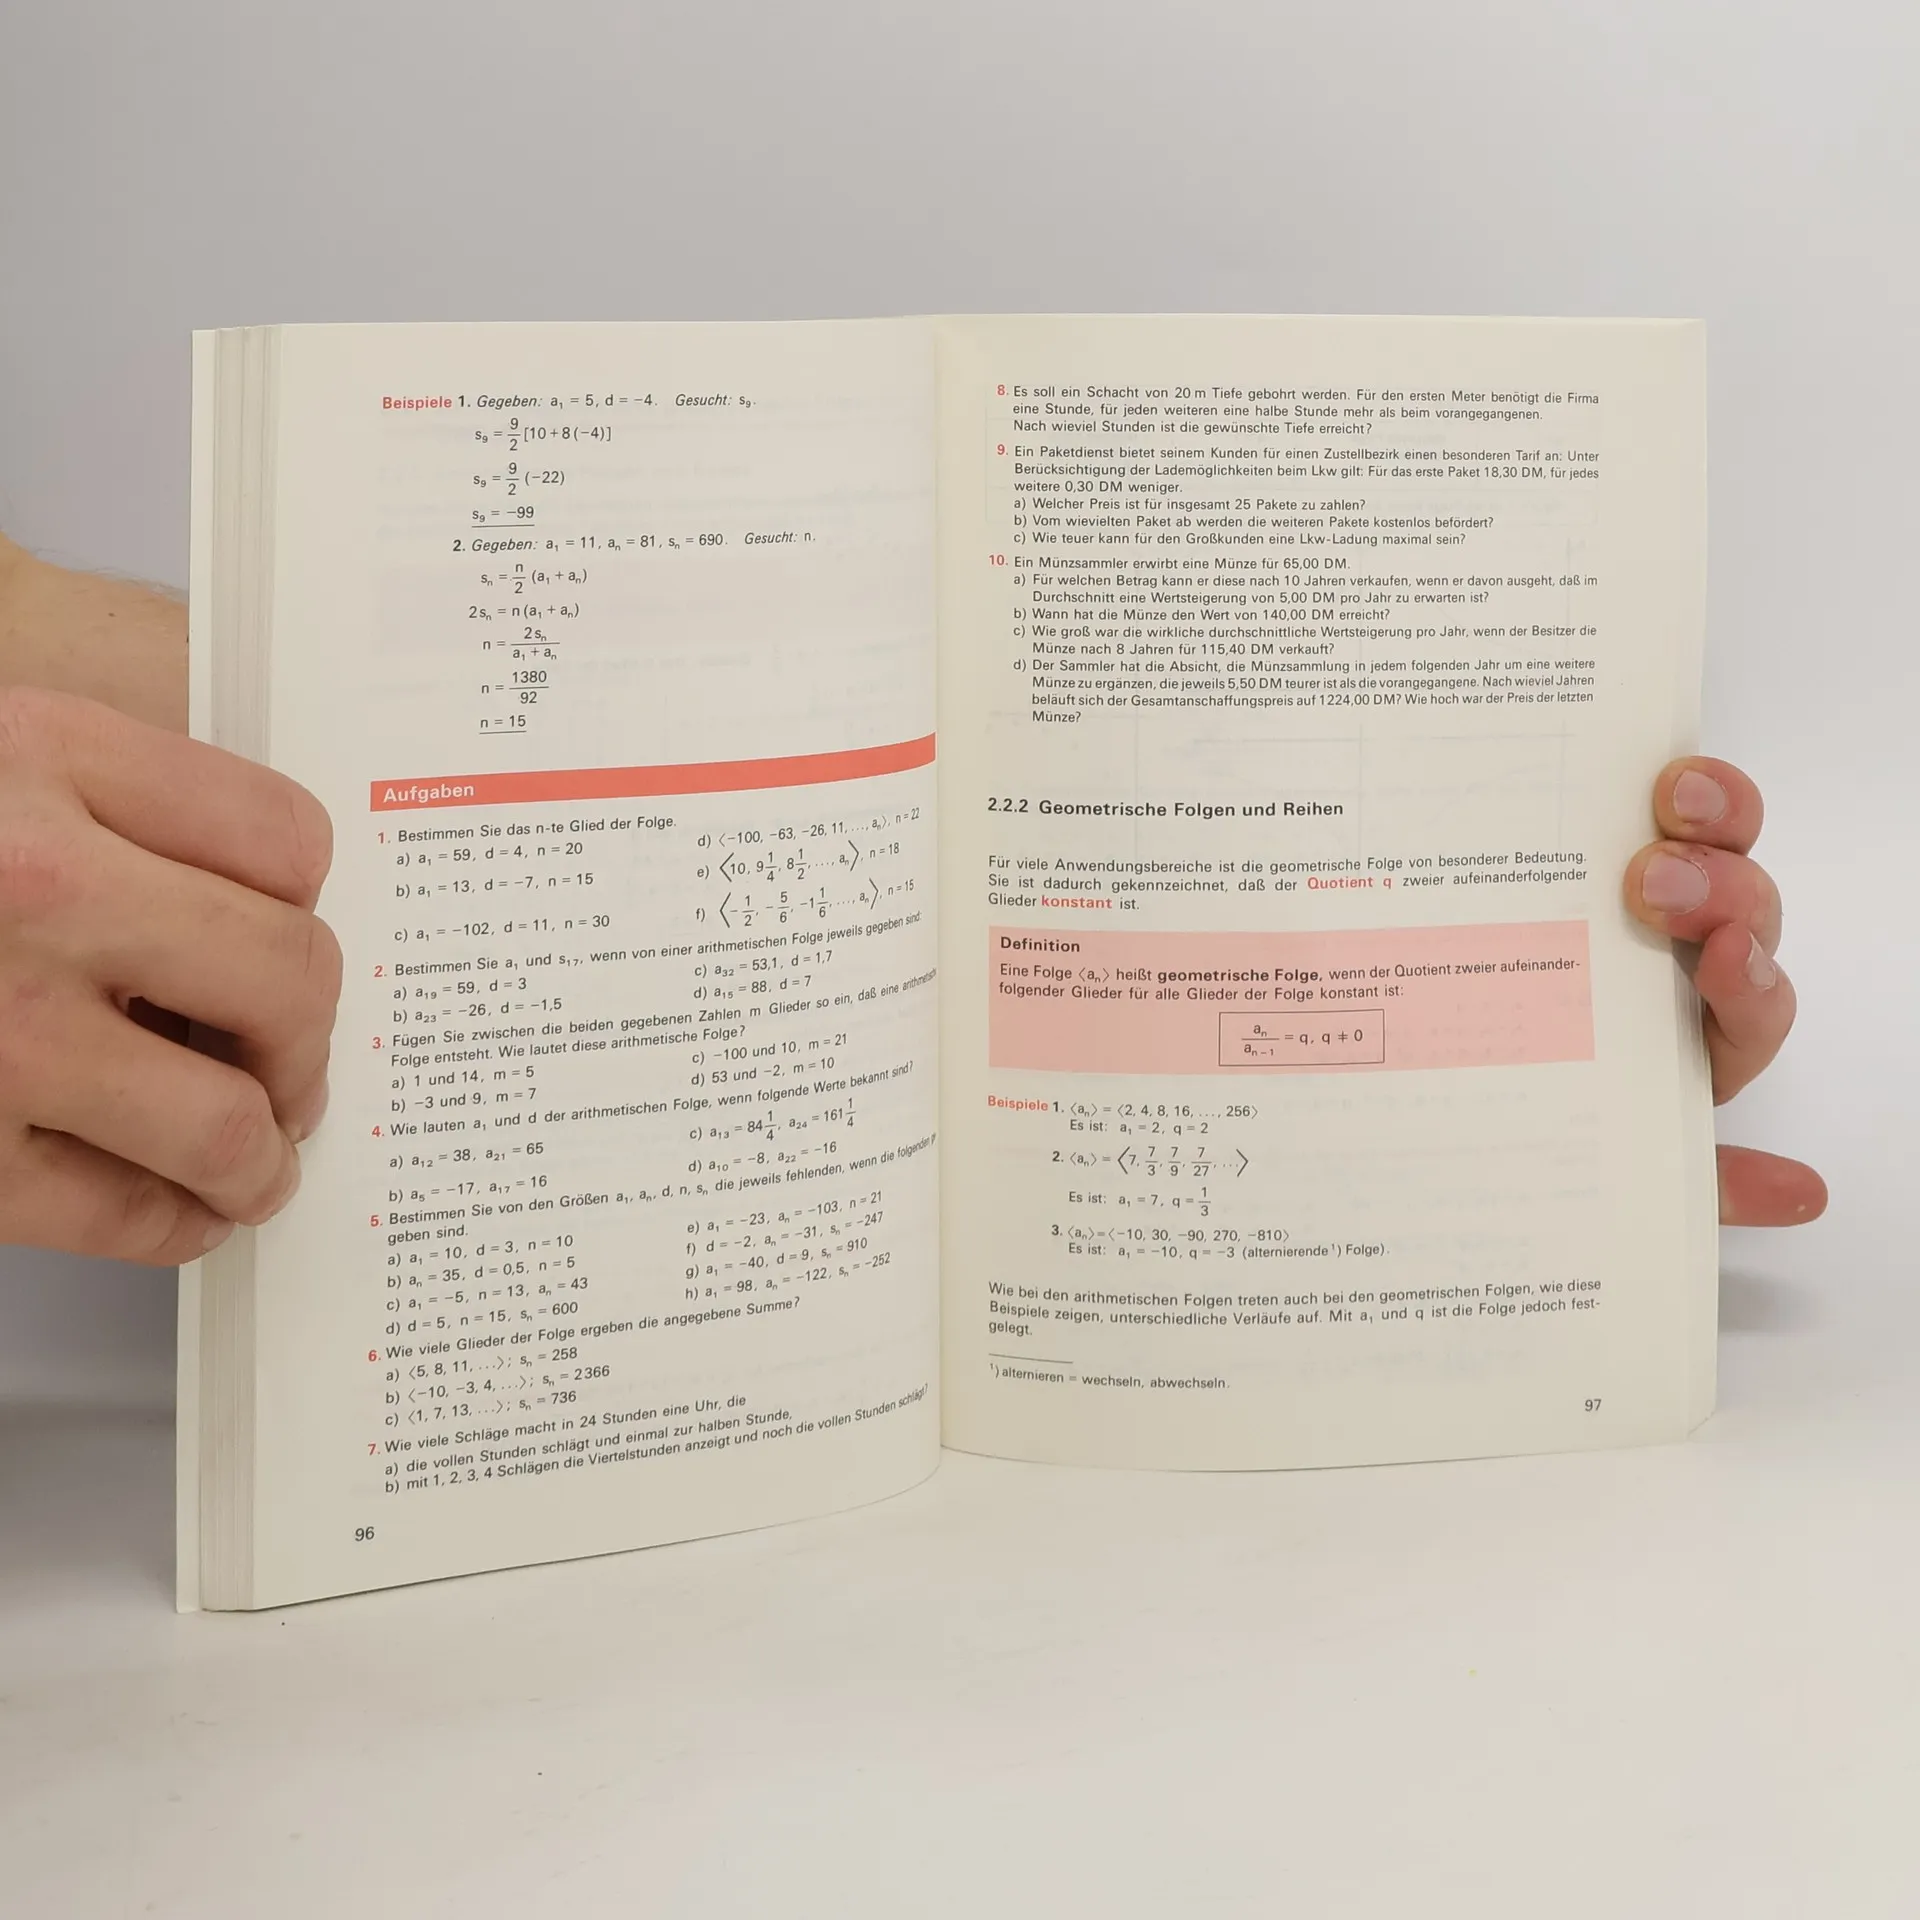 Beispiele 1. Gegeben: a₁ = 5, d = −4. Gesucht: s₉.
s₉ = 9/2 [10 + 8 (−4)]
s₉ = 9/2 (−22)
s₉ = −99
2. Gegeben: a₁ = 11, aₙ = 81, sₙ = 690. Gesucht: n.
sₙ = n/2 (a₁ + aₙ)
2 sₙ = n (a₁ + aₙ)
n = 2 sₙ / a₁ + aₙ
n = 1380/92
n = 15
Aufgaben
1. Bestimmen Sie das n-te Glied der Folge.
a) a₁ = 59, d = 4, n = 20
b) a₁ = 13, d = −7, n = 15
c) a₁ = −102, d = 11, n = 30
d) ⟨−100, −63, −26, 11, ..., aₙ⟩, n = 22
e) ⟨10, 9 1/4, 8 1/2, ..., aₙ⟩, n = 18
f) ⟨−1/2, −5/6, −1 1/6, ..., aₙ⟩, n = 15
2. Bestimmen Sie a₁ und s₁₇, wenn von einer arithmetischen Folge jeweils gegeben sind:
a) a₁₉ = 59, d = 3
b) a₂₃ = −26, d = −1,5
c) a₃₂ = 53,1, d = 1,7
d) a₁₅ = 88, d = 7
3. Fügen Sie zwischen die beiden gegebenen Zahlen m Glieder so ein, daß eine arithmetisch
Folge entsteht. Wie lautet diese arithmetische Folge?
a) 1 und 14, m = 5
b) −3 und 9, m = 7
c) −100 und 10, m = 21
d) 53 und −2, m = 10
4. Wie lauten a₁ und d der arithmetischen Folge, wenn folgende Werte bekannt sind?
a) a₁₂ = 38, a₂₁ = 65
b) a₅ = −17, a₁₇ = 16
c) a₁₃ = 84 1/4, a₂₄ = 161 1/4
d) a₁₀ = −8, a₂₂ = −16
5. Bestimmen Sie von den Größen a₁, aₙ, d, n, sₙ die jeweils fehlenden, wenn die folgenden
geben sind.
a) a₁ = 10, d = 3, n = 10
b) aₙ = 35, d = 0,5, n = 5
c) a₁ = −5, n = 13, aₙ = 43
d) d = 5, n = 15, sₙ = 600
e) a₁ = −23, aₙ = −103, n = 21
f) d = −2, aₙ = −31, sₙ = −247
g) a₁ = −40, d = 9, sₙ = 910
h) a₁ = 98, aₙ = −122, sₙ = −252
6. Wie viele Glieder der Folge ergeben die angegebene Summe?
a) ⟨5, 8, 11, ...⟩; sₙ = 258
b) ⟨−10, −3, 4, ...⟩; sₙ = 2366
c) ⟨1, 7, 13, ...⟩; sₙ = 736
7. Wie viele Schläge macht in 24 Stunden eine Uhr, die
a) die vollen Stunden schlägt und einmal zur halben Stunde,
b) mit 1, 2, 3, 4 Schlägen die Viertelstunden anzeigt und noch die vollen Stunden schlägt?
96
8. Es soll ein Schacht von 20 m Tiefe gebohrt werden. Für den ersten Meter benötigt die Firma
eine Stunde, für jeden weiteren eine halbe Stunde mehr als beim vorangegangenen.
Nach wieviel Stunden ist die gewünschte Tiefe erreicht?
9. Ein Paketdienst bietet seinem Kunden für einen Zustellbezirk einen besonderen Tarif an: Unter
Berücksichtigung der Lademöglichkeiten beim Lkw gilt: Für das erste Paket 18,30 DM, für jedes
weitere 0,30 DM weniger.
a) Welcher Preis ist für insgesamt 25 Pakete zu zahlen?
b) Vom wievielten Paket ab werden die weiteren Pakete kostenlos befördert?
c) Wie teuer kann für den Großkunden eine Lkw-Ladung maximal sein?
10. Ein Münzsammler erwirbt eine Münze für 65,00 DM.
a) Für welchen Betrag kann er diese nach 10 Jahren verkaufen, wenn er davon ausgeht, daß im
Durchschnitt eine Wertsteigerung von 5,00 DM pro Jahr zu erwarten ist?
b) Wann hat die Münze den Wert von 140,00 DM erreicht?
c) Wie groß war die wirkliche durchschnittliche Wertsteigerung pro Jahr, wenn der Besitzer die
Münze nach 8 Jahren für 115,40 DM verkauft?
d) Der Sammler hat die Absicht, die Münzsammlung in jedem folgenden Jahr um eine weitere
Münze zu ergänzen, die jeweils 5,50 DM teurer ist als die vorangegangene. Nach wieviel Jahren
beläuft sich der Gesamtanschaffungspreis auf 1224,00 DM? Wie hoch war der Preis der letzten
Münze?
2.2.2 Geometrische Folgen und Reihen
Für viele Anwendungsbereiche ist die geometrische Folge von besonderer Bedeutung.
Sie ist dadurch gekennzeichnet, daß der Quotient q zweier aufeinanderfolgender
Glieder konstant ist.
Definition
Eine Folge ⟨aₙ⟩ heißt geometrische Folge, wenn der Quotient zweier aufeinander-
folgender Glieder für alle Glieder der Folge konstant ist:
aₙ / aₙ₋₁ = q, q ≠ 0
Beispiele 1. ⟨aₙ⟩ = ⟨2, 4, 8, 16, ..., 256⟩
Es ist: a₁ = 2, q = 2
2. ⟨aₙ⟩ = ⟨7, 7/3, 7/9, 7/27, ...⟩
Es ist: a₁ = 7, q = 1/3
3. ⟨aₙ⟩ = ⟨−10, 30, −90, 270, −810⟩
Es ist: a₁ = −10, q = −3 (alternierende¹) Folge).
Wie bei den arithmetischen Folgen treten auch bei den geometrischen Folgen, wie diese
Beispiele zeigen, unterschiedliche Verläufe auf. Mit a₁ und q ist die Folge jedoch fest-
gelegt.
¹) alternieren = wechseln, abwechseln.
97